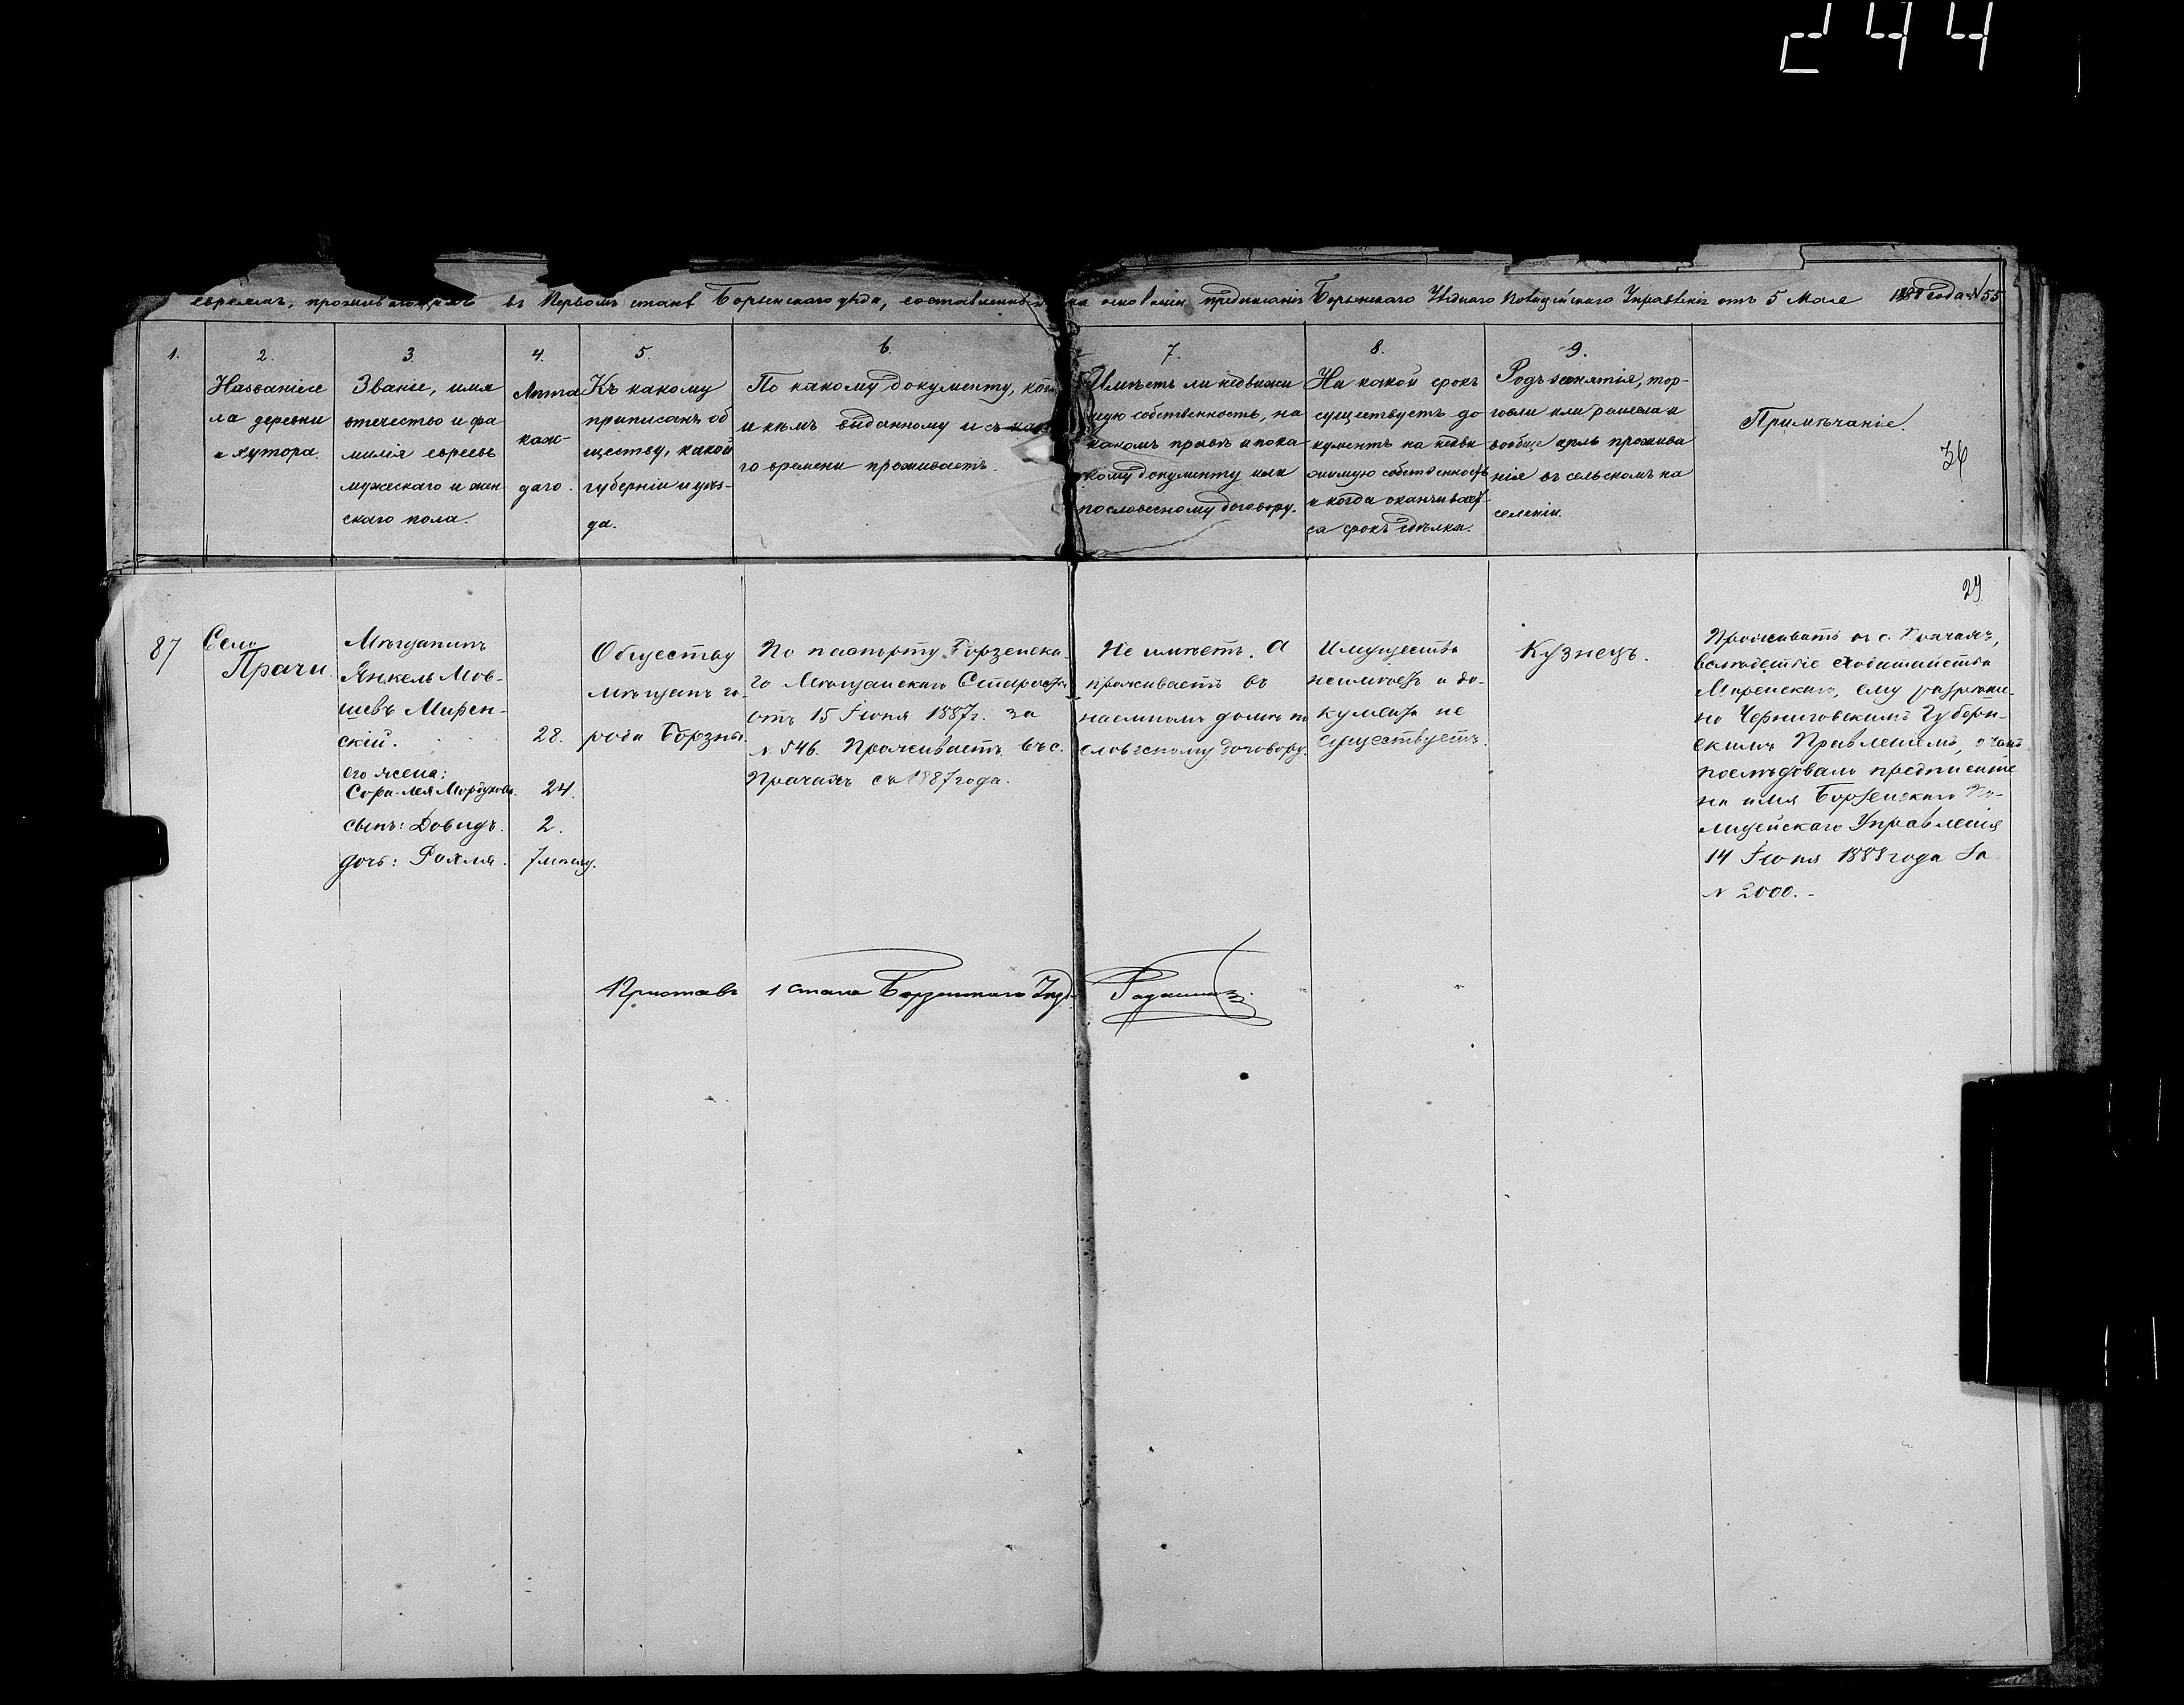 244
евреямъ, проживающимъ въ Первомъ станѣ Борзенскаго уѣзда, составленный на основаніи предписанія Борзенскаго Уѣзднаго Полицейскаго Управленія отъ 5 Мая 1888 года № 55
1.
2.
Названіе се
ла деревни
и хутора.
3.
Званіе, имя
отчество и фа
милія евреевъ
мужескаго и жен
скаго пола.
4.
Лѣта
каж-
даго.
5.
Къ какому
приписанъ об
ществу, какой
губерніи и уѣз-
да.
6.
По какому документу, когда
и кѣмъ выданному и съ како
го времени проживаетъ.
7.
Имѣетъ ли недвижи
мую собственность, на
какомъ правѣ и по ка
кому документу или
по словесному договору.
8.
На какой срокъ
существуетъ до
кументъ на недви
жимую собственность
и когда оканчивает
ся срокъ сдѣлки.
9.
Родъ занятія, тор-
говли или ремесла и
вообще цѣль прожива
нія въ сельскомъ на
селеніи.
Примѣчаніе.
36
29
87
Село
Прачи.
Мѣщанинъ
Янкель Мов-
шевъ Мирен-
скій.
его жена:
Сора-Лея Мордухова.
сынъ: Довидъ.
дочь: Рахля.
28.
24.
2.
7 мѣсяц.
Обществу
мѣщанъ го-
рода Борзны.
По паспорту Борзенска-
го Мѣщанскаго Старосты
отъ 15 Іюня 1887 г. за
№ 546. Проживаетъ въ с.
Прачахъ съ 1887 года.
Не имѣетъ. А
проживаетъ въ
наемномъ домѣ по
словесному договору.
Имущества
неимѣетъ и до-
кумента не
существуетъ.
Кузнецъ.
Проживать въ с. Прачахъ,
вслѣдствіе ходатайства
Миренскаго, ему разрѣше-
но Черниговскимъ Губерн-
скимъ Правленіемъ, о чемъ
послѣдовало предписаніе
на имя Борзенскаго По-
лицейскаго Управленія
14 Іюня 1888 года за
№ 2000.-
Приставъ 1 стана Борзенскаго Уѣзд.